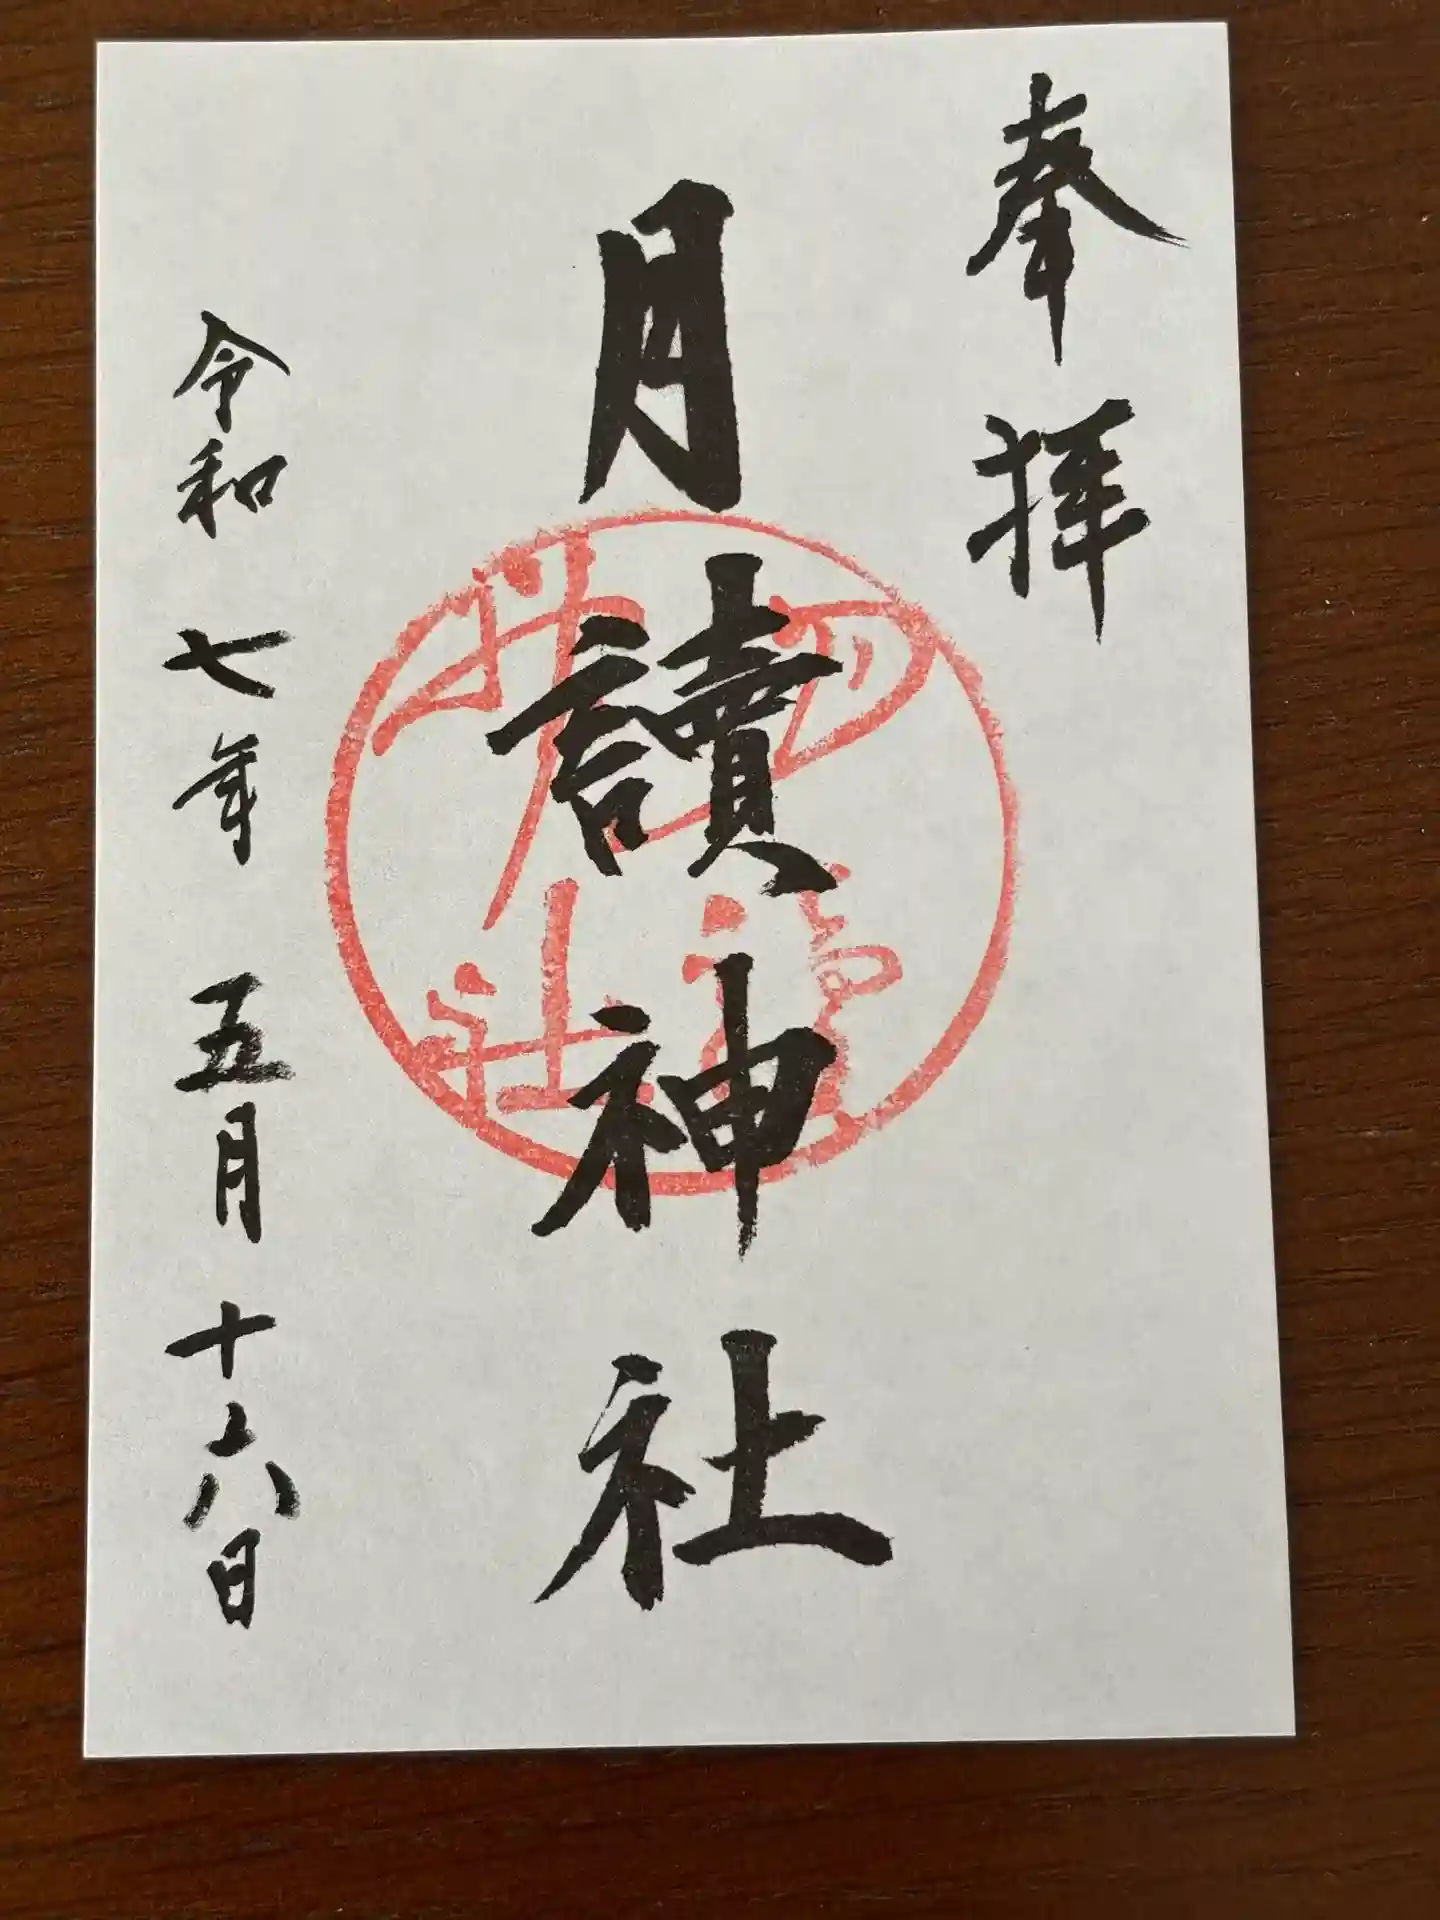 奉拝
月讀神社
令和七年 五月十六日